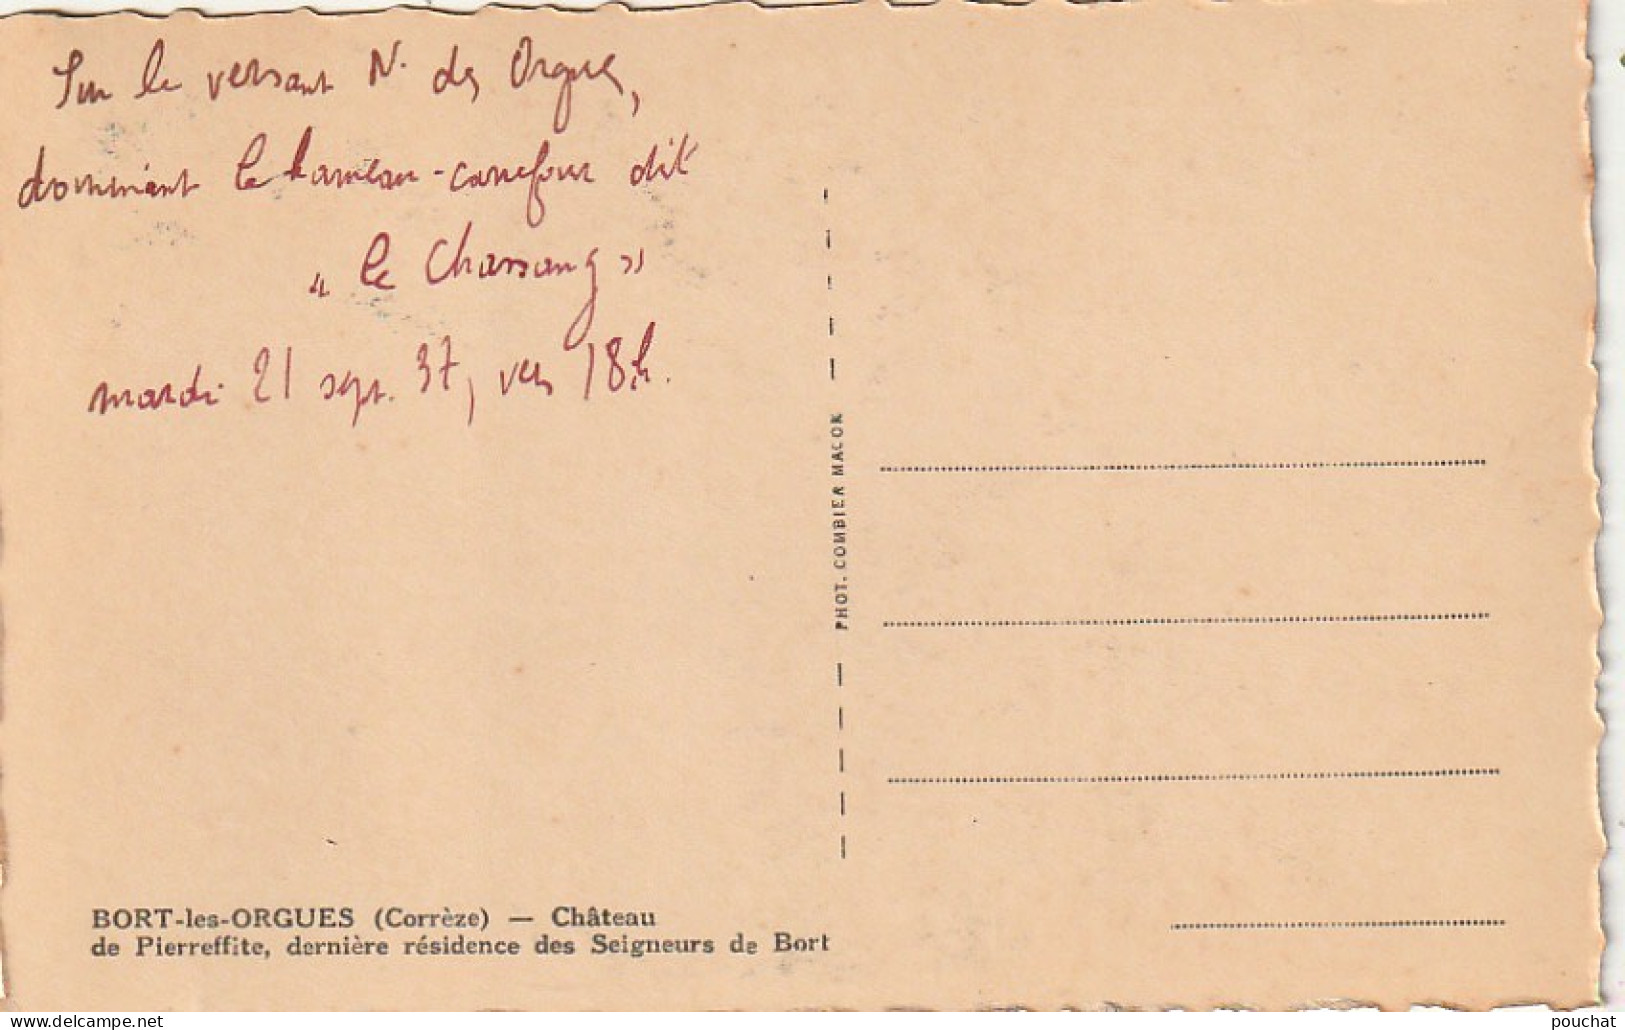 Sur le versant N. des Orgues,
dominant le hameau-carrefour dit
« le Chassang »
mardi 21 sept. 37, vers 18h.
PHOT. COMBIER MACON
BORT-les-ORGUES (Corrèze) — Château
de Pierreffite, dernière résidence des Seigneurs de Bort
https://www.delcampe.net
pouchat